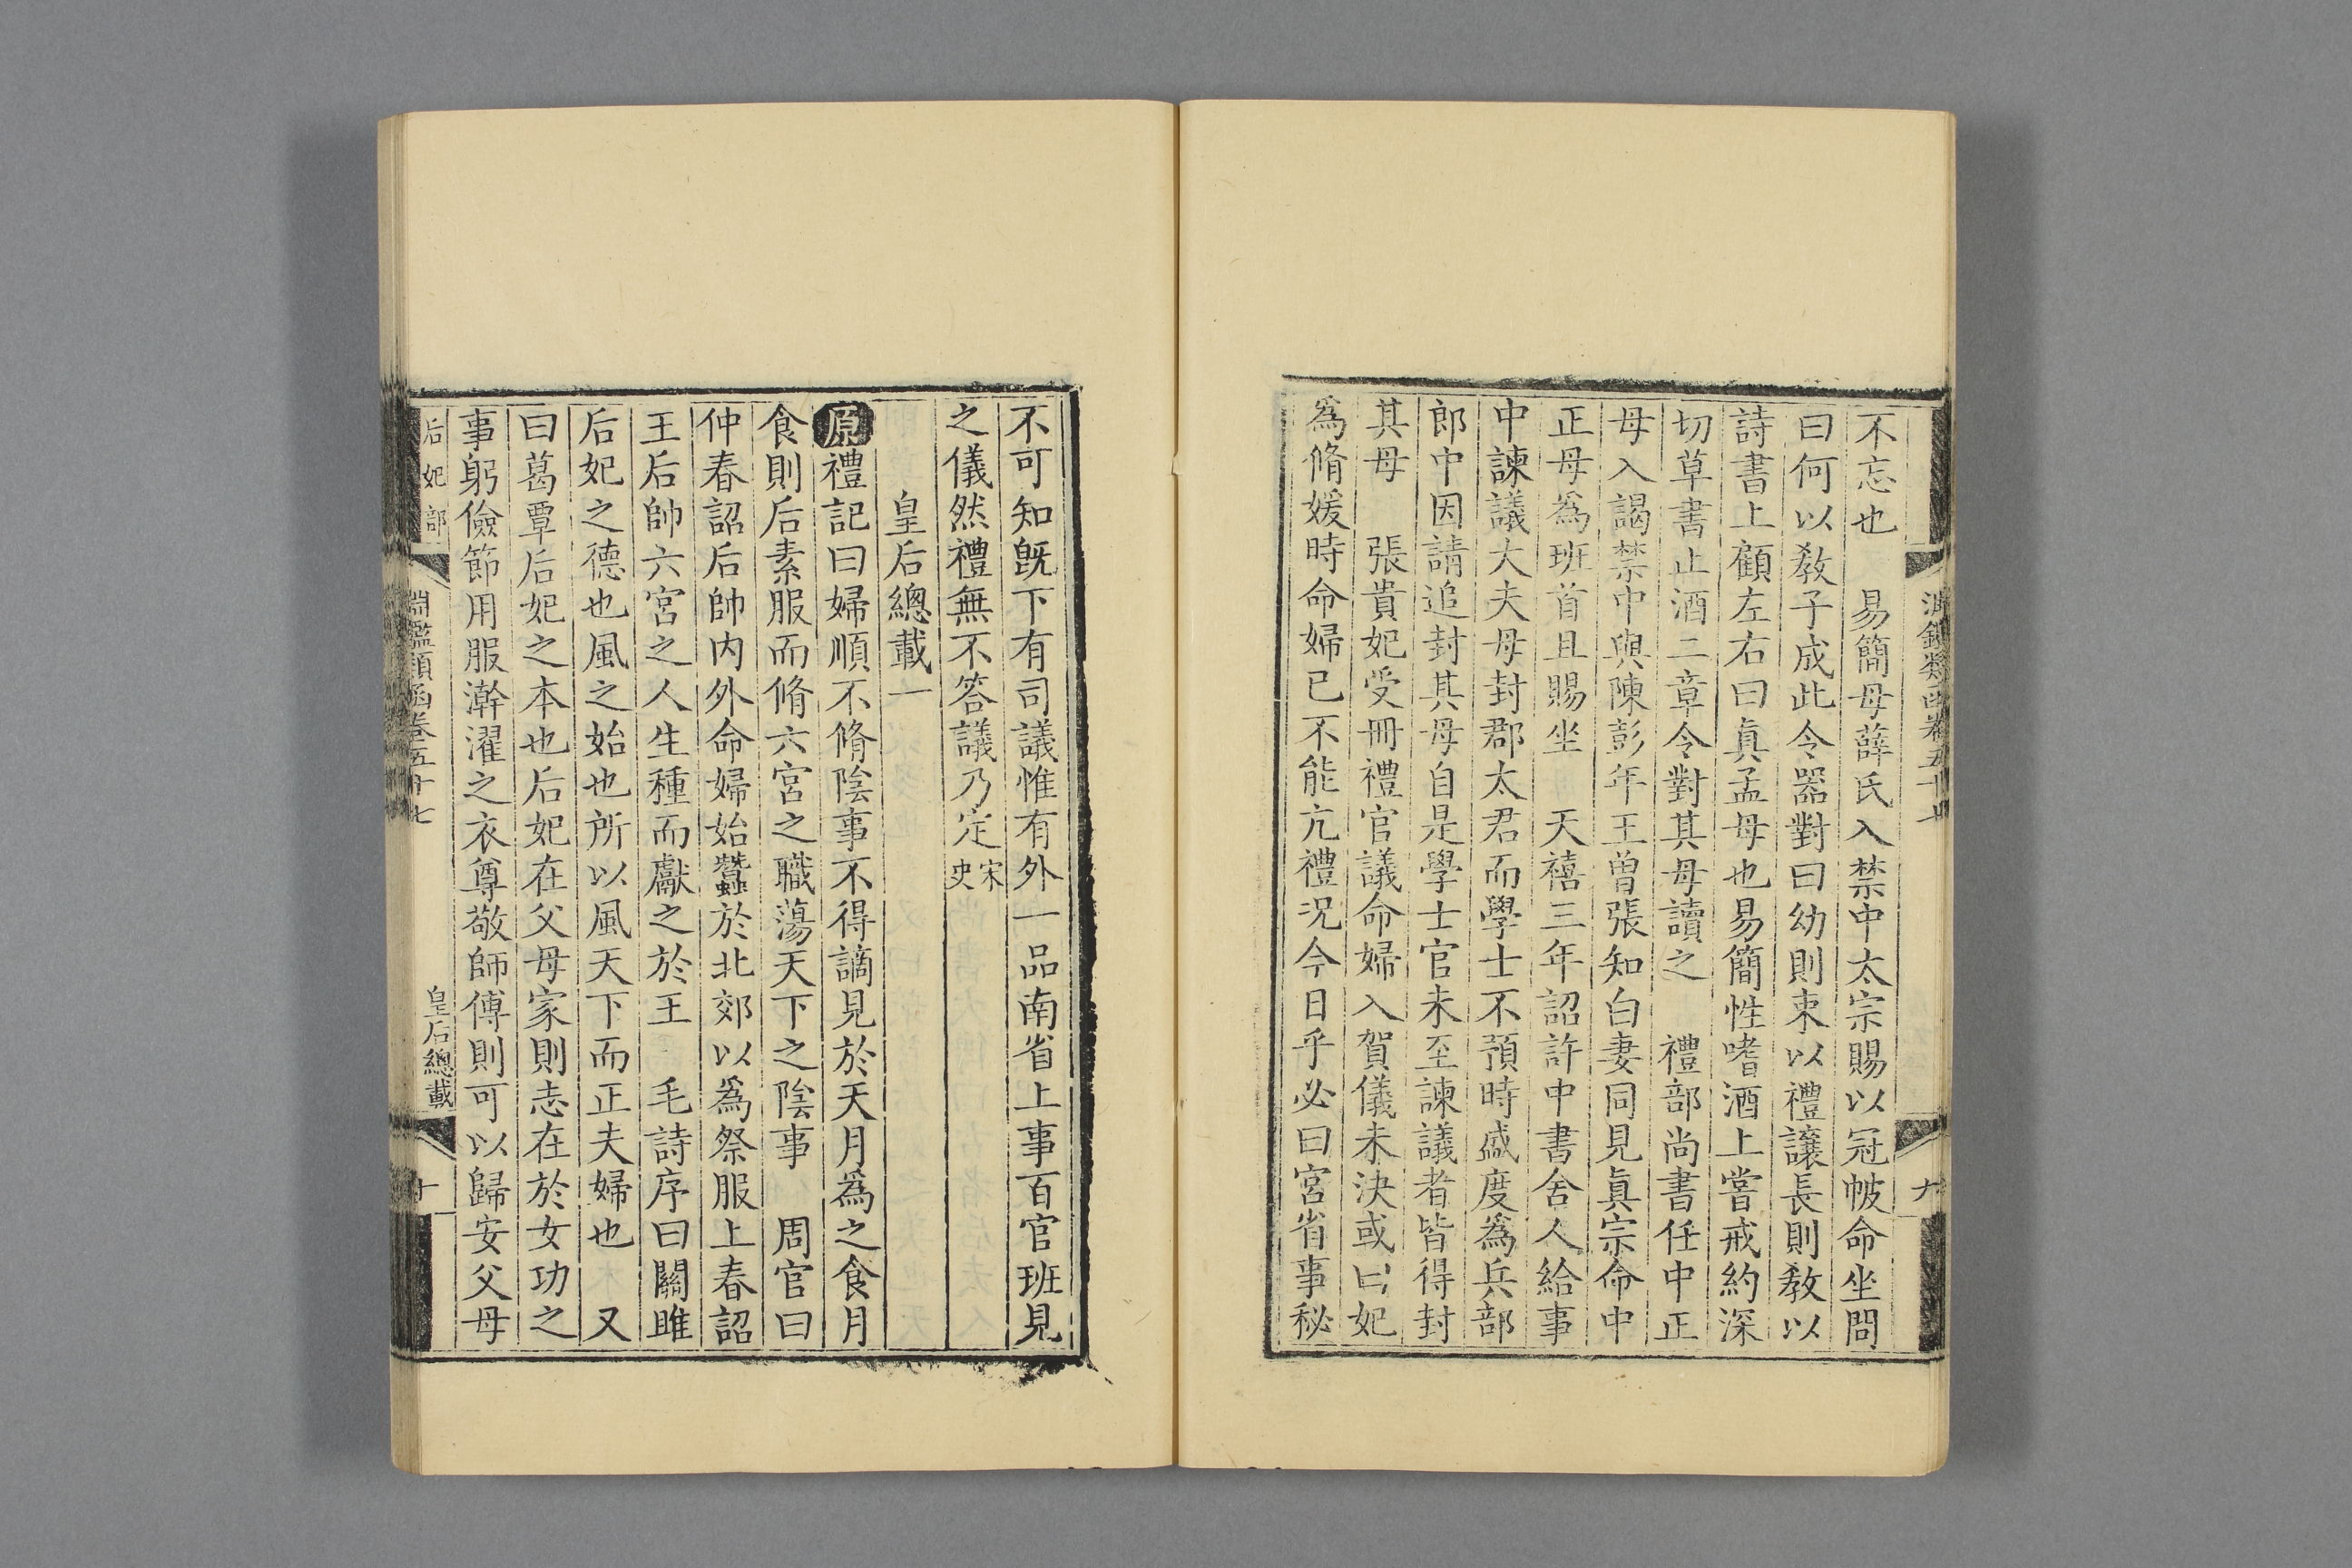 淵鑑類函卷五十七
九
不忘也　易簡母薛氏入禁中太宗賜以冠帔命坐問
曰何以敎子成此令器對曰幼則束以禮讓長則敎以
詩書上顧左右曰眞孟母也易簡性嗜酒上嘗戒約深
切草書止酒二章令對其母讀之　禮部尚書任中正
母入謁禁中與陳彭年王曾張知白妻同見眞宗命中
正母爲班首且賜坐　天禧三年詔許中書舍人給事
中諫議大夫母封郡太君而學士不預時盛度爲兵部
郎中因請追封其母自是學士官未至諫議者皆得封
其母　張貴妃受冊禮官議命婦入賀儀未決或曰妃
爲脩媛時命婦已不能亢禮況今日乎必曰宮省事秘
不可知旣下有司議惟有外一品南省上事百官班見
之儀然禮無不答議乃定宋史
皇后總載一
原禮記曰婦順不脩陰事不得謫見於天月爲之食月
食則后素服而脩六宮之職蕩天下之陰事　周官曰
仲春詔后帥内外命婦始蠶於北郊以爲祭服上春詔
王后帥六宮之人生種而獻之於王　毛詩序曰關雎
后妃之德也風之始也所以風天下而正夫婦也　又
曰葛覃后妃之本也后妃在父母家則志在於女功之
事躬儉節用服澣濯之衣尊敬師傅則可以歸安父母
后妃部
淵鑑類函卷五十七
皇后總載
十